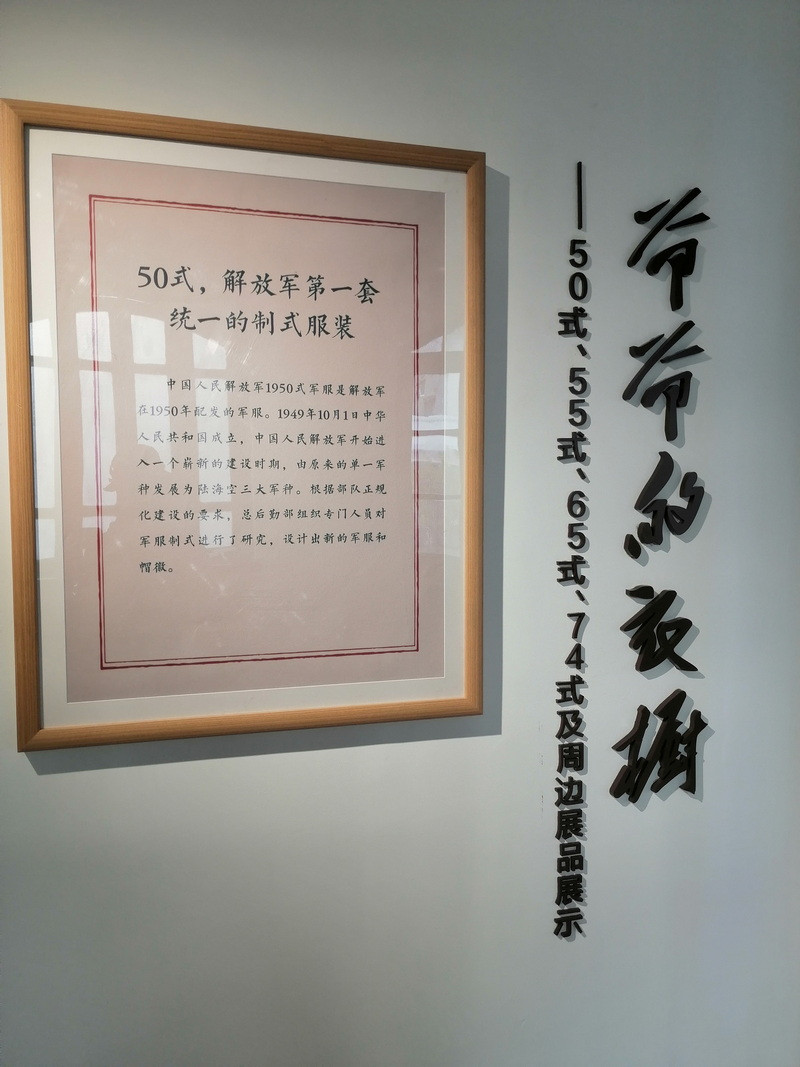 50式，解放军第一套
统一的制式服装
中国人民解放军1950式军服是解放军
在1950年配发的军服。1949年10月1日中华
人民共和国成立，中国人民解放军开始进
入一个崭新的建设时期，由原来的单一军
种发展为陆海空三大军种。根据部队正规
化建设的要求，总后勤部组织专门人员对
军服制式进行了研究，设计出新的军服和
帽徽。
爷爷的衣橱
——50式、55式、65式、74式及周边展品展示